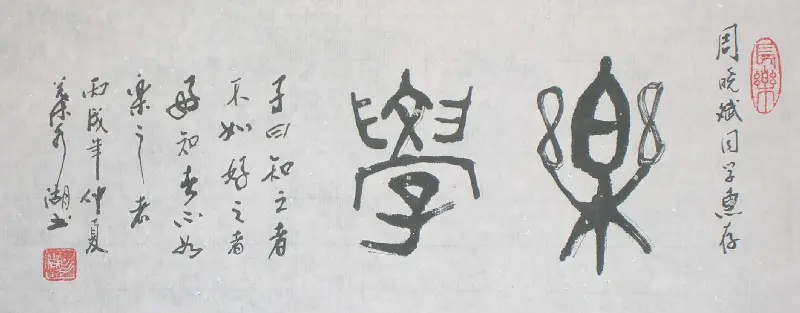 長樂
周晓斌同学惠存
樂學
子曰知之者
不如好之者
好知者不如
乐之者
丙戌年仲夏
湖书